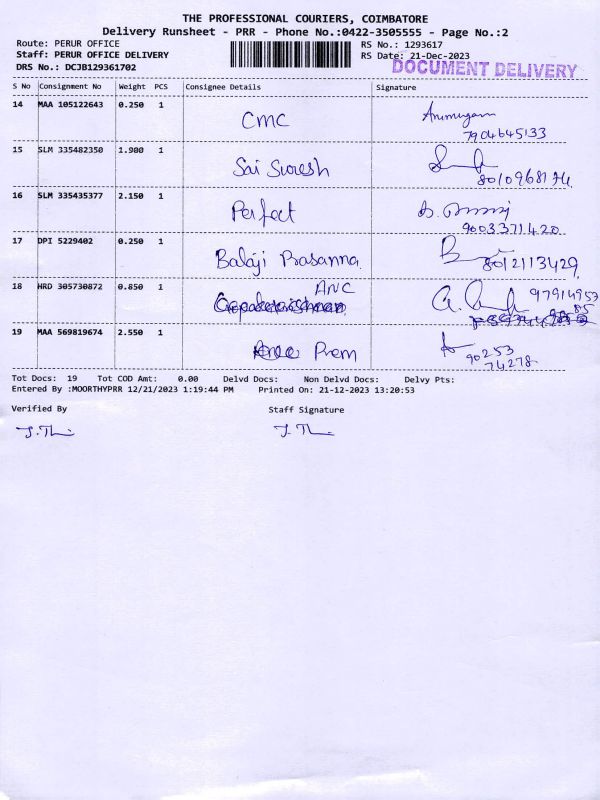 THE PROFESSIONAL COURIERS, COIMBATORE
Delivery Runsheet - PRR - Phone No.:0422-3505555 - Page No.:2
Route: PERUR OFFICE RS No.: 1293617
Staff: PERUR OFFICE DELIVERY RS Date: 21-Dec-2023
DRS No.: DCJB129361702 DOCUMENT DELIVERY
S No Consignment No Weight PCS Consignee Details Signature
14 MAA 105122643 0.250 1 CMC Arumugam
7904645133
15 SLM 335482350 1.900 1 Sai Suresh
80109681
16 SLM 335435377 2.150 1 Perfect
9003371420
17 DPI 5229402 0.250 1 Balaji Prasanna
8012113429
18 HRD 305730872 0.850 1 ANC 97914953
85
19 MAA 569819674 2.550 1 Prem 90253
74278
Tot Docs: 19 Tot COD Amt: 0.00 Delvd Docs: Non Delvd Docs: Delvy Pts:
Entered By :MOORTHYPRR 12/21/2023 1:19:44 PM Printed On: 21-12-2023 13:20:53
Verified By Staff Signature